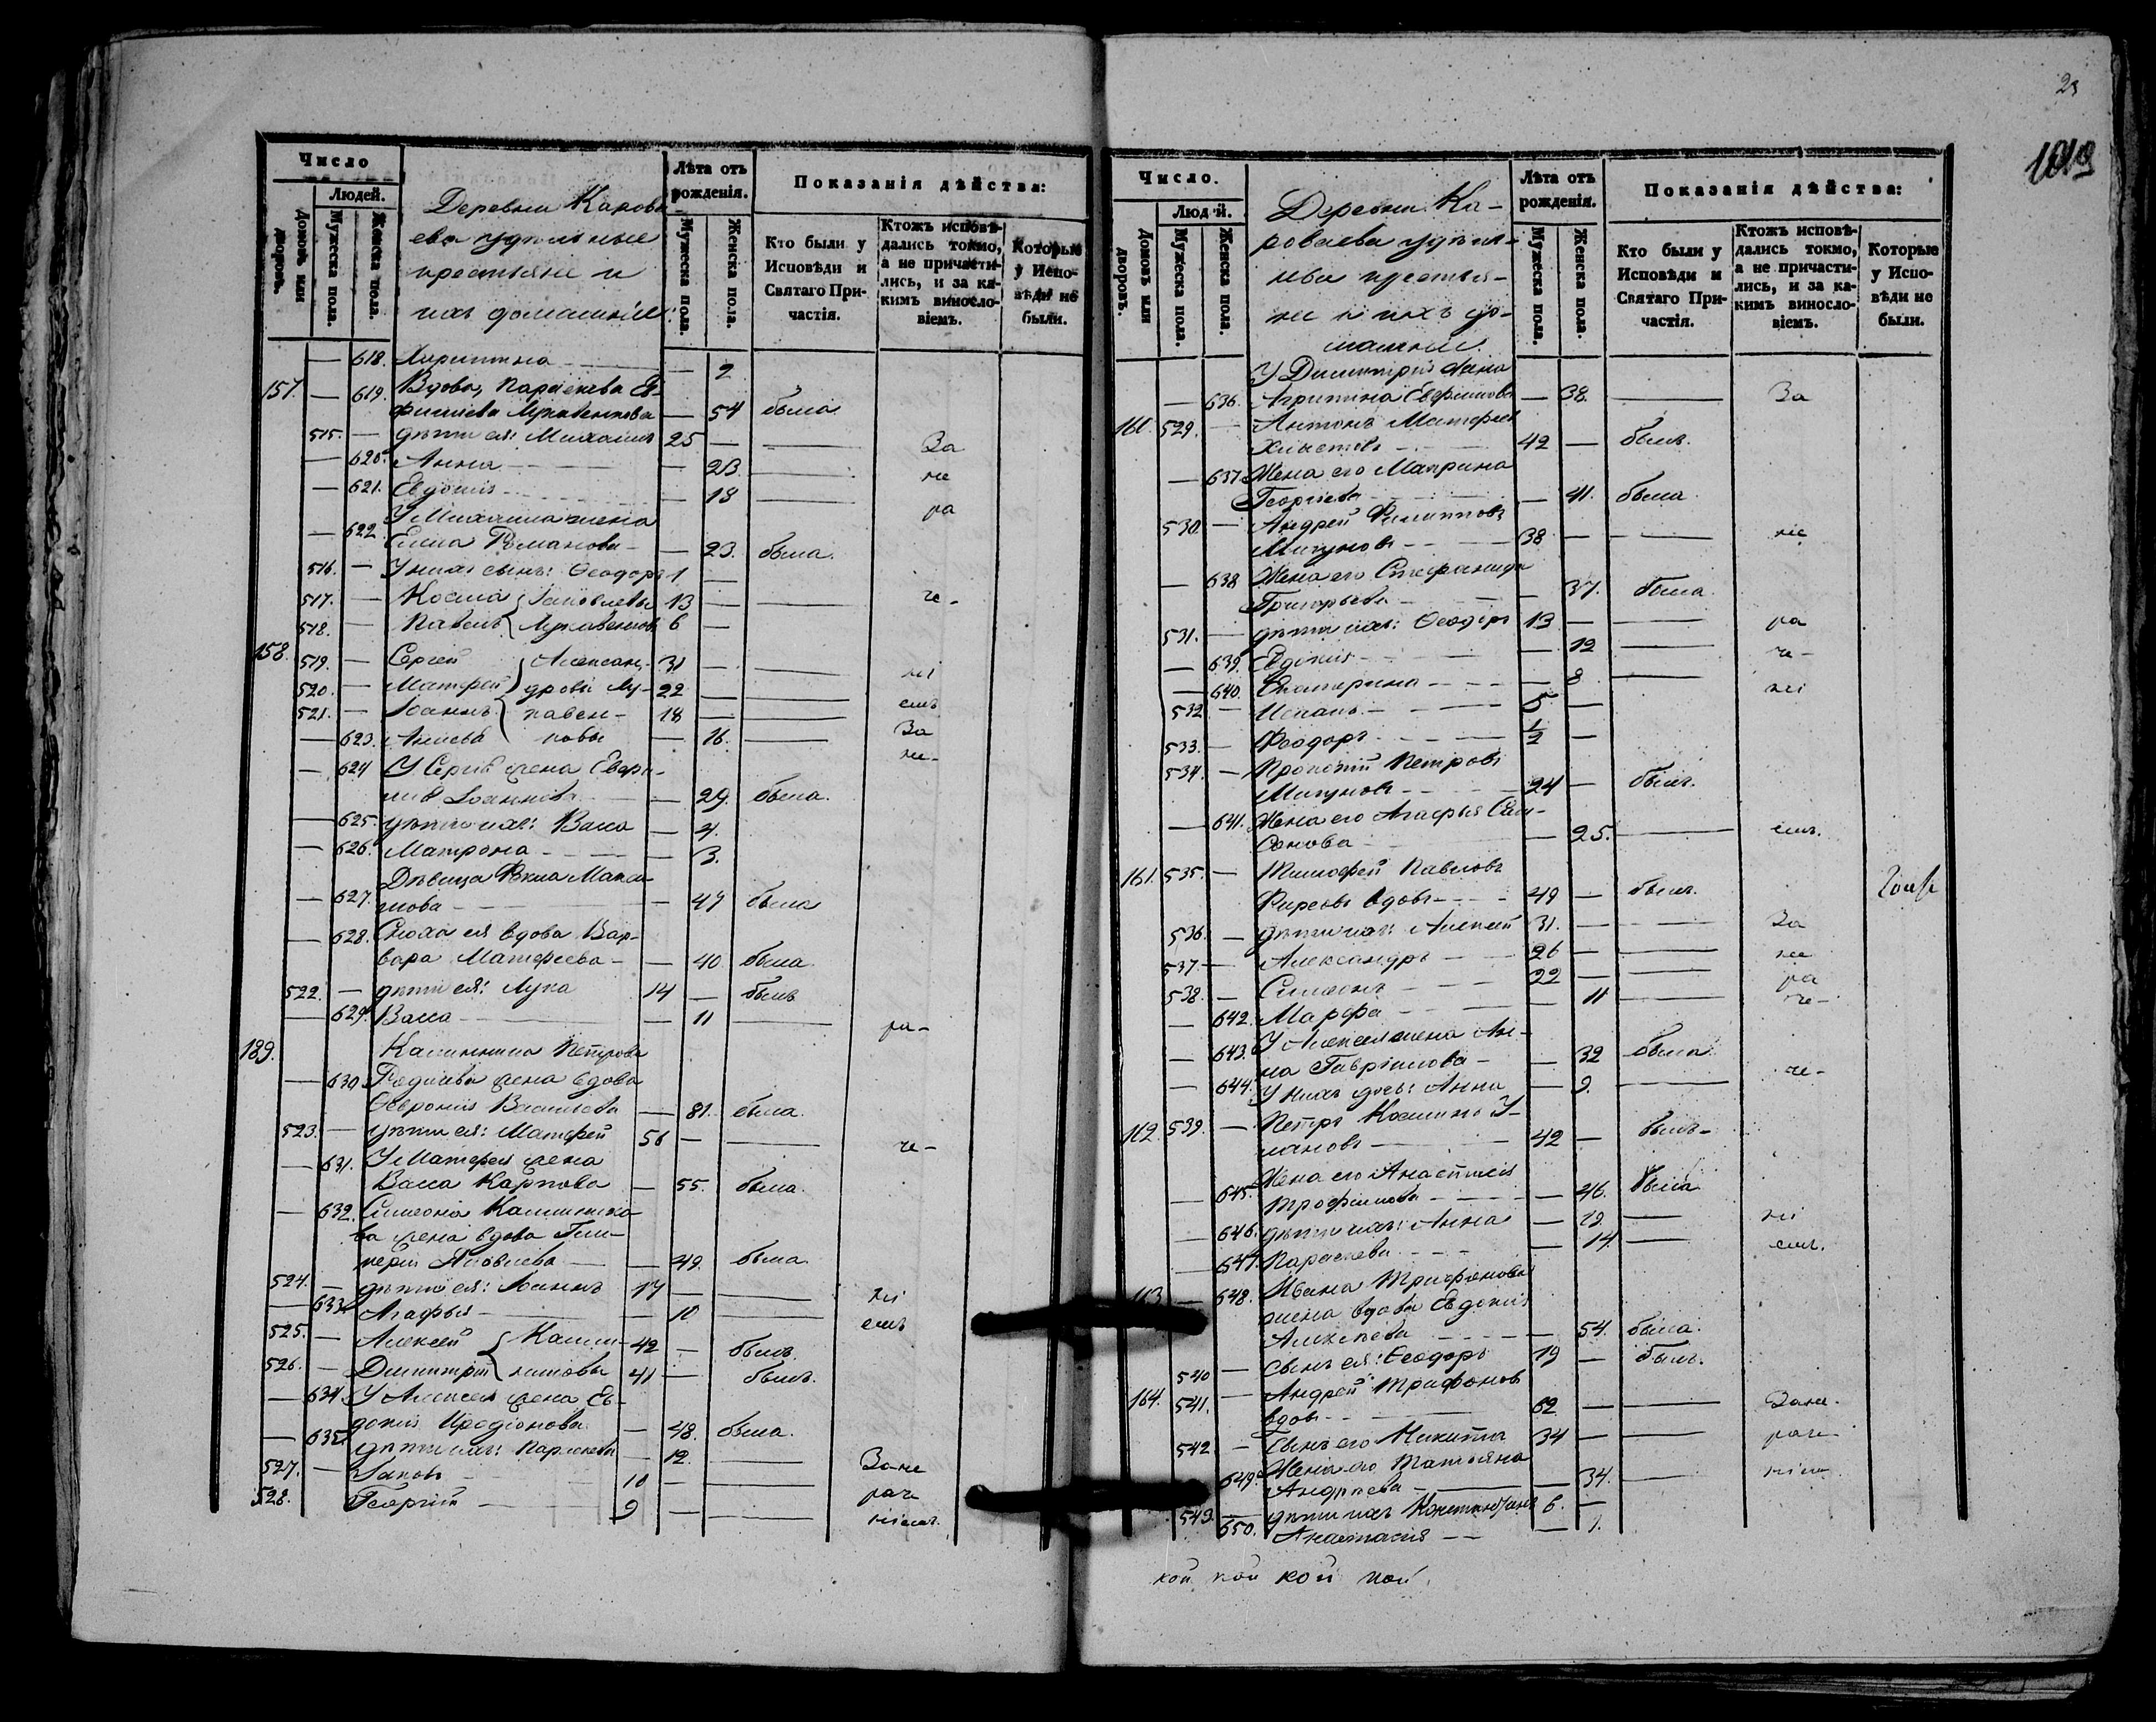 Число
Людей.
Домовъ или дворовъ.
Мужеска пола.
Женска пола.
Деревни Карова-
ева удѣльные
крестьяне и
ихъ домашніе
Лѣта отъ рожденія.
Мужеска пола.
Женска пола.
Показанія дѣйства:
Кто были у Исповѣди и Святаго Причастія.
Ктожъ исповѣдались токмо, а не причастились, и за какимъ винословіемъ.
Которые у Исповѣди не были.
— 618. — 2
157. — 619. Вдова Параскева
— 54 была
515. — дѣти ея: Михаилъ 25 — — За
— 620. Анна — 23 — не
— 621. Евдокія — 18 — ра
У Михаила жена
— 622. Елена Романова — 23. была.
516. — У нихъ сынъ: Ѳеодоръ 1 —
517. — Косма Іаковлевы 13 — — че-
518. — Павелъ 6 —
158. 519. — Сергей Алексан- 31 — — ні
520. — Матфей дровы Лу- 22 — — емъ
521. — Іоаннъ 18 — — За
— 623. — 16. — не-
— 624 У Сергія жена
Іоаннова — 29. была.
— 625. дѣти ихъ: Васса — 4.
— 626. Матрона — 3.
Дѣвица Ѳекла Макси-
— 627. мова — 47 была
— 628. Сноха ея вдова Вар-
вара Матфеева — 40 была
522. — дѣти ея: Лука 14 — былъ
— 629. Васса — 11 — ра-
189. Калинника Петрова
— 630 жена вдова
Ѳевронія Васильева — 81. была.
523. — дѣти ея: Матфей 56 — — че-
— 631. У Матфея жена
Васса Карпова — 55. была.
— 632. Симеона Калинико-
ва жена вдова Гли-
керія Яковлева — 49. была
524. — дѣти ея: Іоаннъ 17 — — ні
— 633 Агафья — 10 — емъ
525. — Алексей Калин- 42 — былъ.
526. — Димитрій никовы 41 — былъ.
— 634 У Алексея жена Ев-
докія Иродіонова — 48. была.
— 635 дѣти ихъ: Параскева — 12. — За не
527. — Іаковъ 10 — — раче
528. Георгій 9 — — ніемъ.
23
1019
Число.
Людей.
Домовъ или дворовъ.
Мужеска пола.
Женска пола.
Деревни Ка-
роваева удѣль-
ныя крестья-
не и ихъ до-
машніе.
Лѣта отъ рожденія.
Мужеска пола.
Женска пола.
Показанія дѣйства:
Кто были у Исповѣди и Святаго Причастія.
Ктожъ исповѣдались токмо, а не причастились, и за какимъ винословіемъ.
Которые у Исповѣди не были.
У Димитрія жена
— 636. Агрипина Евфимова — 38. — За
160. 529. — Антонъ Матфеев
42 — былъ.
— 637. Жена его Матрина
Георгіева — 41. была.
530 — Андрей Филиповъ
Мигуновъ 38 — — не
— 638 Жена его Стефанида
Григорьева — 37. была.
531. — дѣти ихъ: Ѳеодоръ 13 — — ра
— 639. Евдокія — 12 — че-
— 640. Екатерина — 8 — ні
532 — 5 —
533. — Ѳеодоръ 1/2 —
534. — Прокопій Петровъ
Мигуновъ 24 — былъ.
— 641. Жена его Агафья Сам-
сонова — 25. — емъ.
161. 535. — Тимофей Павловъ
Фирсовъ вдовъ 49 — былъ.
536. — дѣти ихъ: Алексей 31. — — За
537. — Александръ 26 — — не
538. — Симеонъ 22 — — ра
— 642. Марфа — 11 — че-
— 643. У Алексея жена Ан-
на Гавріилова — 32 была
— 644. У нихъ дочь: Анна — 9. — че-
162. 539. — Петръ Косминъ У-
42 — былъ-
Жена его Анастасія
— 645. Трофимова — 46. была
— 646. дѣти ихъ: Анна — 19. — ні
— 647. Параскева — 14. — емъ.
163 — 648. Ивана Трифонова
жена вдова Евдокія
Алексѣева — 54. была.
540 — сынъ ея: Ѳеодоръ 19 — былъ.
164. 541. — Андрей Трифоновъ
вдовъ 62 — — За не-
542. — Сынъ его Никита 34 — — раче
Жена его Татьяна
649. Андреева — 34. — ніем.
543. — дѣти ихъ Константинъ 6. —
650. Анастасія — 1.
кой кой кой кой.